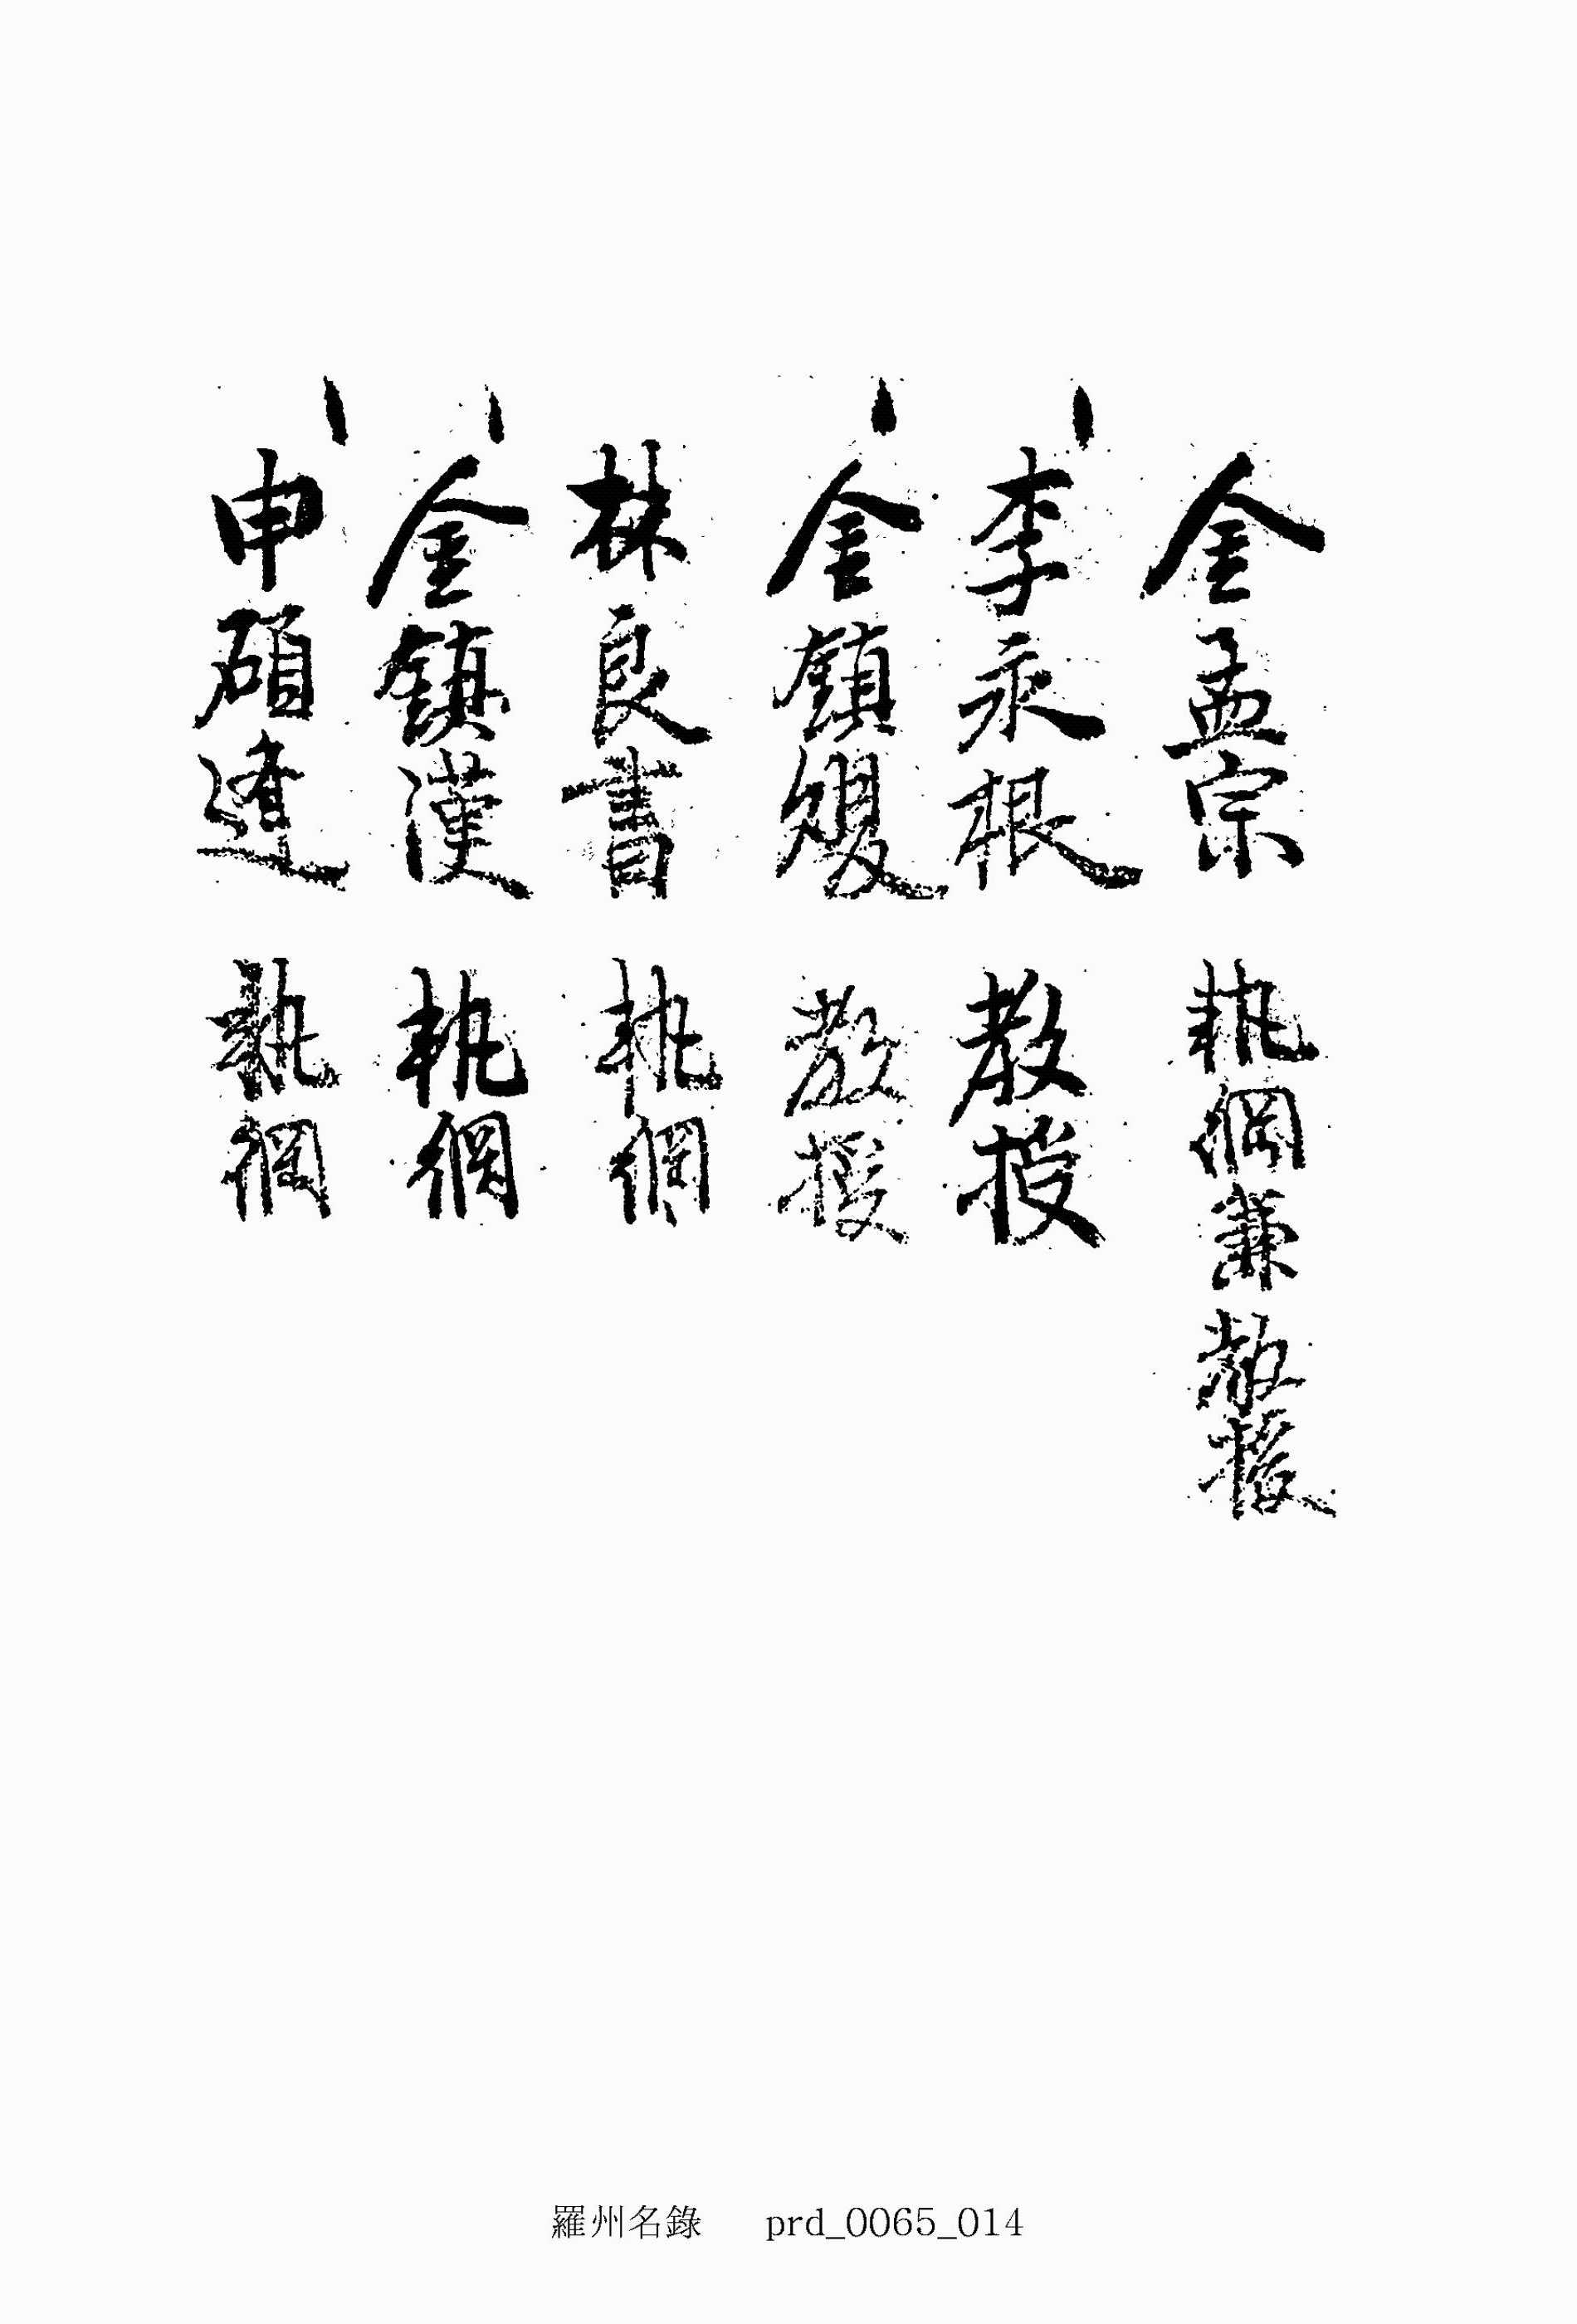 金孟宗 執綱兼敎授
李永根 敎授
金鎭 敎授
林良書 執綱
金鎭漢 執綱
申碩 執綱
羅州名錄 prd_0065_014